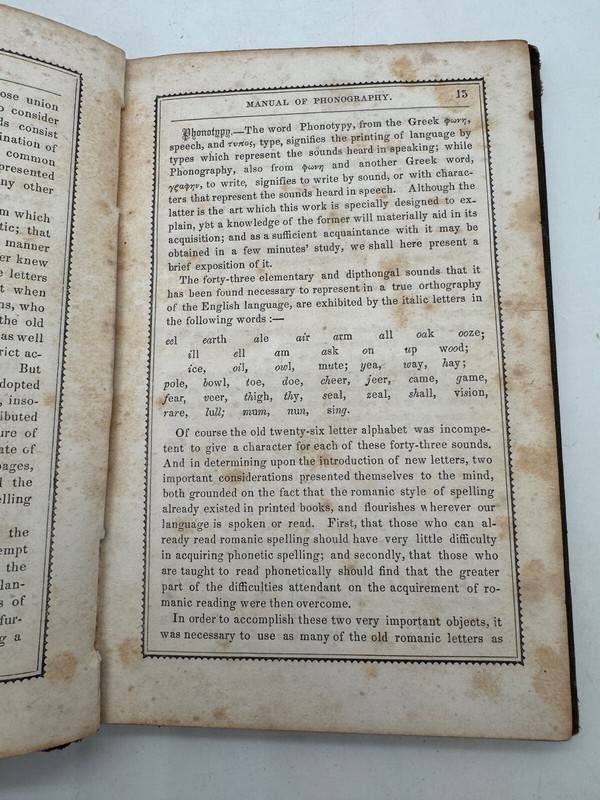 ose union
o consider
ds consist
ination of
common
presented
ny other
m which
tic; that
manner
er knew
e letters
t when
ns, who
the old
as well
rict ac-
But
dopted
, inso-
ibuted
ure of
ate of
ages,
d the
elling
the
empt
the
lan-
s of
fur-
g a
MANUAL OF PHONOGRAPHY. 15
Phonotypy.—The word Phonotypy, from the Greek φωνη,
speech, and τυπος, type, signifies the printing of language by
types which represent the sounds heard in speaking; while
Phonography, also from φωνη and another Greek word,
γραφην, to write, signifies to write by sound, or with charac-
ters that represent the sounds heard in speech. Although the
latter is the art which this work is specially designed to ex-
plain, yet a knowledge of the former will materially aid in its
acquisition; and as a sufficient acquaintance with it may be
obtained in a few minutes' study, we shall here present a
brief exposition of it.
The forty-three elementary and dipthongal sounds that it
has been found necessary to represent in a true orthography
of the English language, are exhibited by the italic letters in
the following words :—
eel earth ale air arm all oak ooze;
ill ell am ask on up wood;
ice, oil, owl, mute; yea, way, hay;
pole, bowl, toe, doe, cheer, jeer, came, game,
fear, veer, thigh, thy, seal, zeal, shall, vision,
rare, lull; mum, nun, sing.
Of course the old twenty-six letter alphabet was incompe-
tent to give a character for each of these forty-three sounds.
And in determining upon the introduction of new letters, two
important considerations presented themselves to the mind,
both grounded on the fact that the romanic style of spelling
already existed in printed books, and flourishes wherever our
language is spoken or read. First, that those who can al-
ready read romanic spelling should have very little difficulty
in acquiring phonetic spelling; and secondly, that those who
are taught to read phonetically should find that the greater
part of the difficulties attendant on the acquirement of ro-
manic reading were then overcome.
In order to accomplish these two very important objects, it
was necessary to use as many of the old romanic letters as